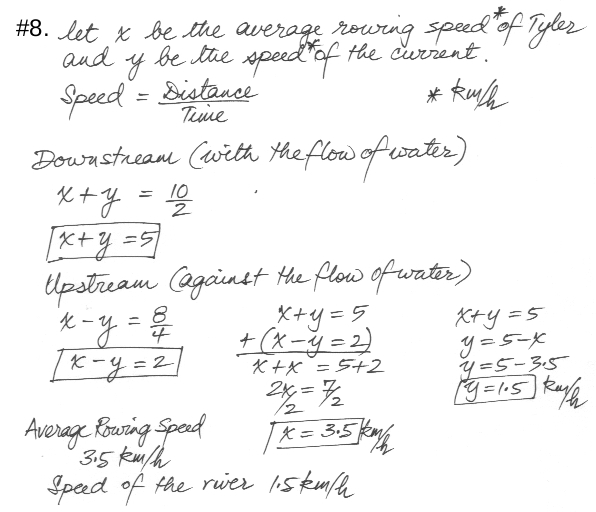 #8. let x be the average rowing speed* of Tyler
and y be the speed* of the current.
Speed = Distance / Time
* km/h
Downstream (with the flow of water)
x + y = 10/2
x + y = 5
Upstream (against the flow of water)
x - y = 8/4
x - y = 2
x + y = 5
+ (x - y = 2)
x + x = 5 + 2
2x/2 = 7/2
x = 3.5 km/h
x + y = 5
y = 5 - x
y = 5 - 3.5
y = 1.5 km/h
Average Rowing Speed
3.5 km/h
Speed of the river 1.5 km/h